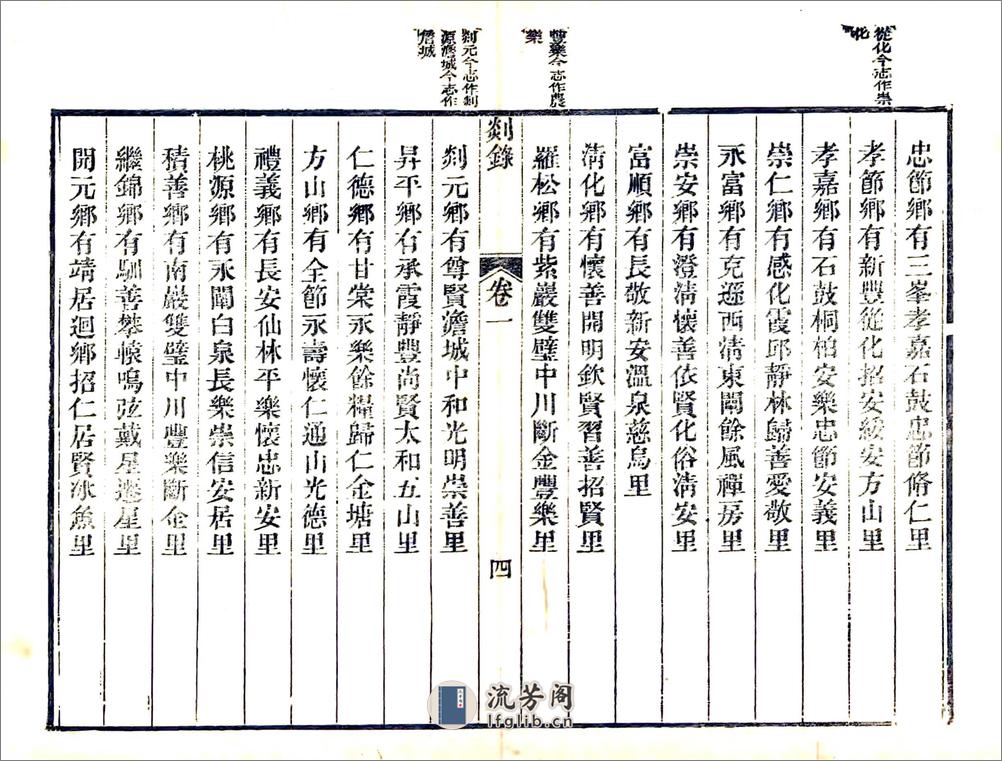 從化今志作崇
化
豐樂今志作農
樂
剡元今志作剡
源澹城今志作
詹城
忠節鄉有三峯孝嘉石鼓忠節脩仁里
孝節鄉有新豐從化招安綏安方山里
孝嘉鄉有石鼓桐柏安樂忠節安義里
崇仁鄉有感化霞邱靜林歸善愛敬里
永富鄉有克遜西清東閘餘風禪房里
崇安鄉有澄清懷善依賢化俗清安里
富順鄉有長敬新安溫泉慈烏里
淸化鄉有懷善開明欽賢習善招賢里
羅松鄉有紫巖雙璧中川斷金豐樂里
剡錄
卷一
四
剡元鄉有尊賢澹城中和光明崇善里
昇平鄉右承霞靜豐尚賢太和五山里
仁德鄉有甘棠永樂餘糧歸仁金塘里
方山鄉有全節永壽懷仁通山光德里
禮義鄉有長安仙林平樂懷忠新安里
桃源鄉有永閘白泉長樂崇信安居里
積善鄉有南巖雙璧中川豐樂斷金里
繼錦鄉有馴善攀轅鳴弦戴星里
開元鄉有靖居迴鄉招仁居賢冰魚里
流芳阁
lfglib.cn